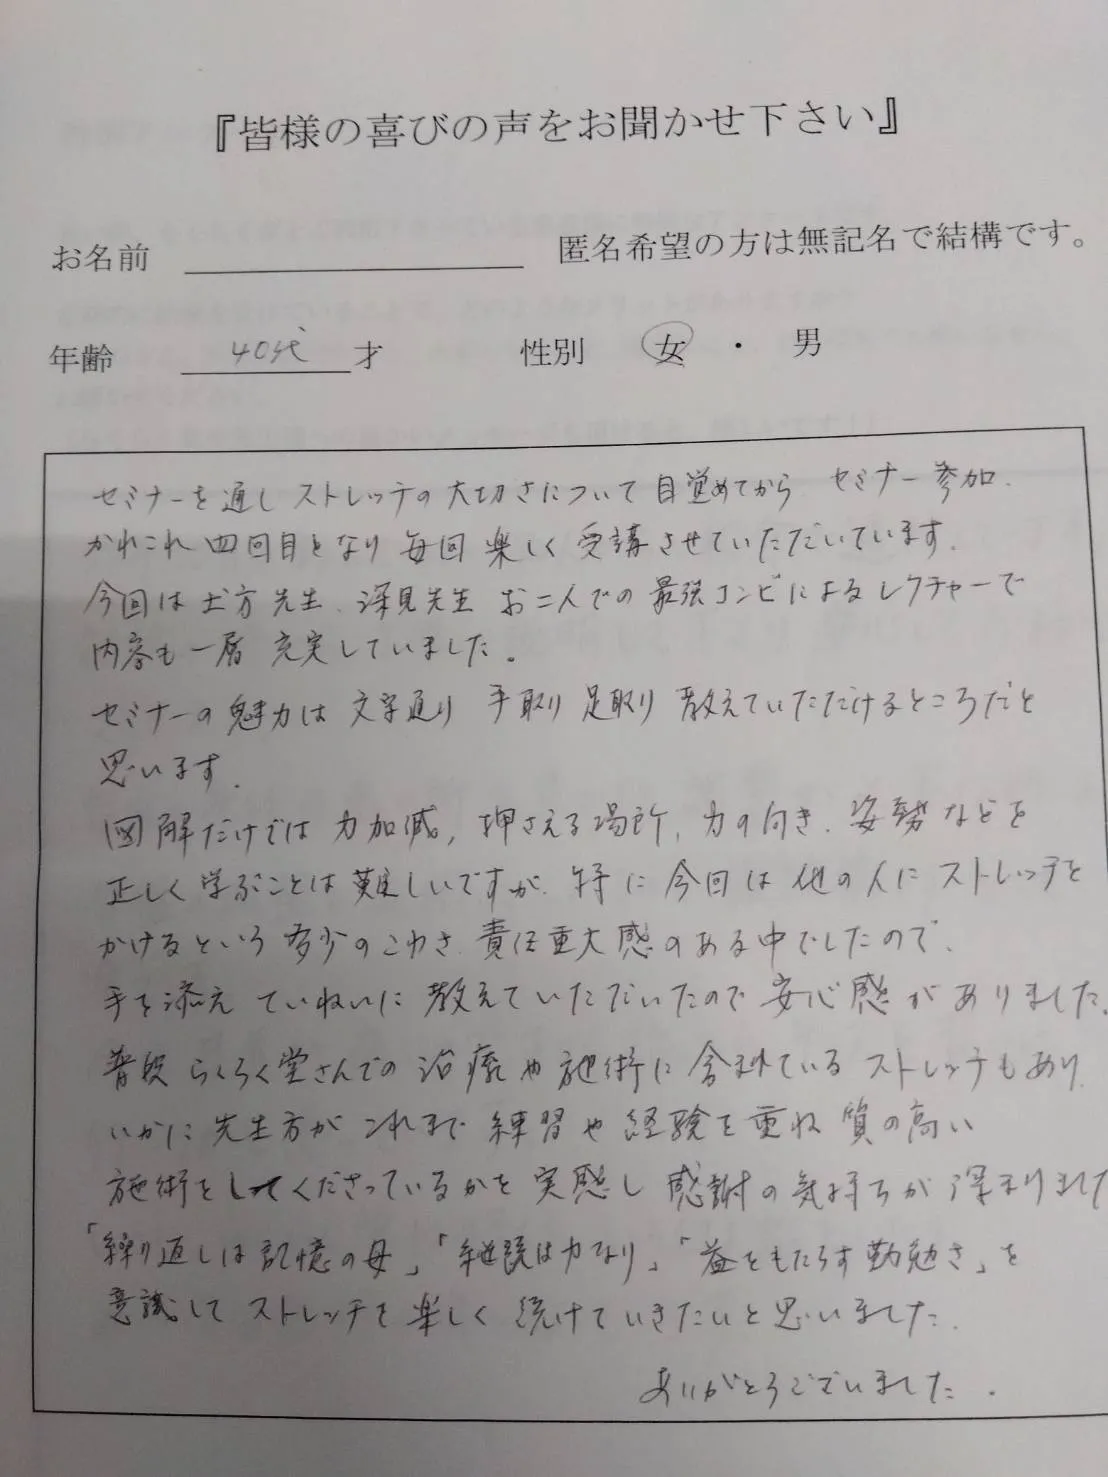 『皆様の喜びの声をお聞かせ下さい』
お名前 匿名希望の方は無記名で結構です。
年齢 40代 才 性別 女 ・ 男
セミナーを通しストレッチの大切さについて目覚めてから セミナー参加、
かれこれ四回目となり毎回楽しく受講させていただいています。
今回は土方先生、深見先生お二人での最強コンビによるレクチャーで
内容も一層充実していました。
セミナーの魅力は文字通り 手取り足取り教えていただけるところだと
思います。
図解だけでは力加減, 押さえる場所, 力の向き、姿勢などを
正しく学ぶことは難しいですが、特に今回は他の人にストレッチを
かけるという多少のこわさ、責任重大感のある中でしたので、
手を添え ていねいに教えていただいたので安心感がありました。
普段らくらく堂さんでの治療や施術に含まれているストレッチもあり、
いかに先生方がこれまで練習や経験を重ね質の高い
施術をしてくださっているかを実感し感謝の気持ちが深まりました
「繰り返しは記憶の母」「継続は力なり」「益をもたらす勤勉さ」を
意識してストレッチを楽しく続けていきたいと思いました。
ありがとうございました。